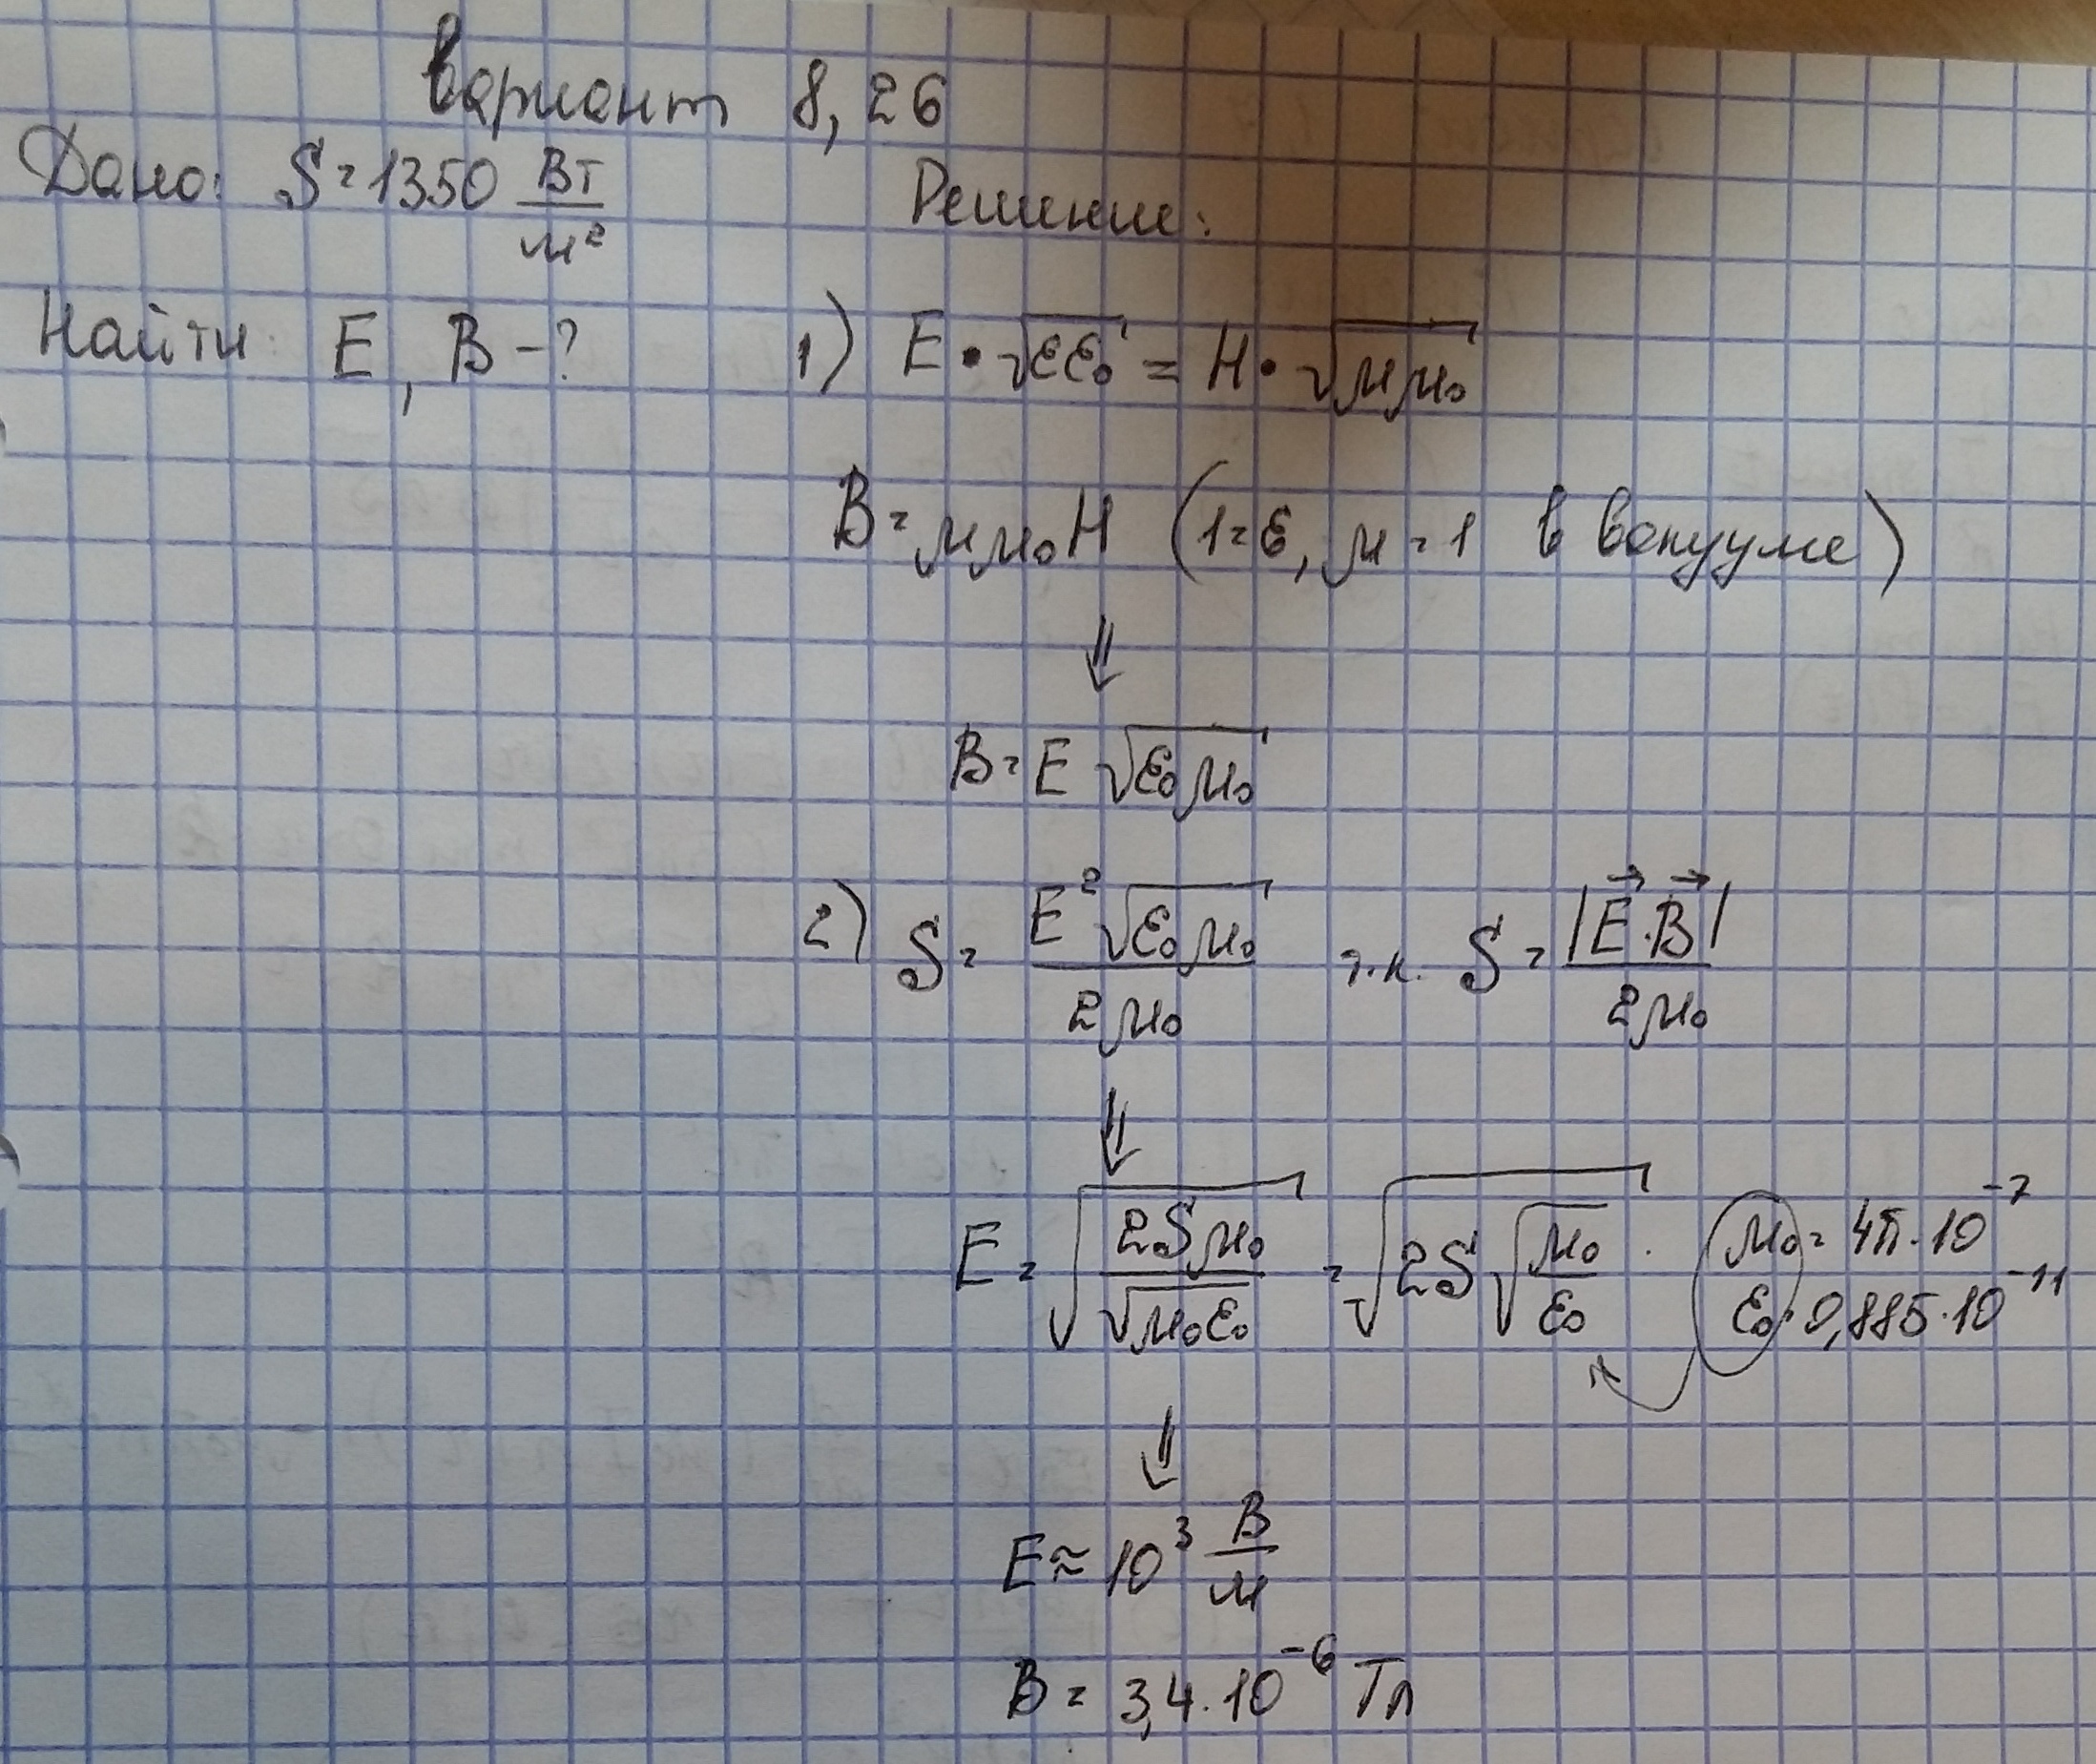 Вариант 8, 26
Дано: S = 1350 Вт/м²
Решение:
Найти: E, B - ?
1) E · √(εε₀) = H · √(μμ₀)
B = μμ₀H (1 = ε, μ = 1 в вакууме)
⇓
B = E √(ε₀μ₀)
2) S = E²√(ε₀μ₀) / 2μ₀ т.к. S = |E⃗·B⃗| / 2μ₀
⇓
E = √(2Sμ₀ / √(μ₀ε₀)) = √(2S√(μ₀/ε₀)) · μ₀ = 4π·10⁻⁷
ε₀ = 0,885·10⁻¹¹
⇓
E ≈ 10³ В/м
B = 3,4·10⁻⁶ Тл